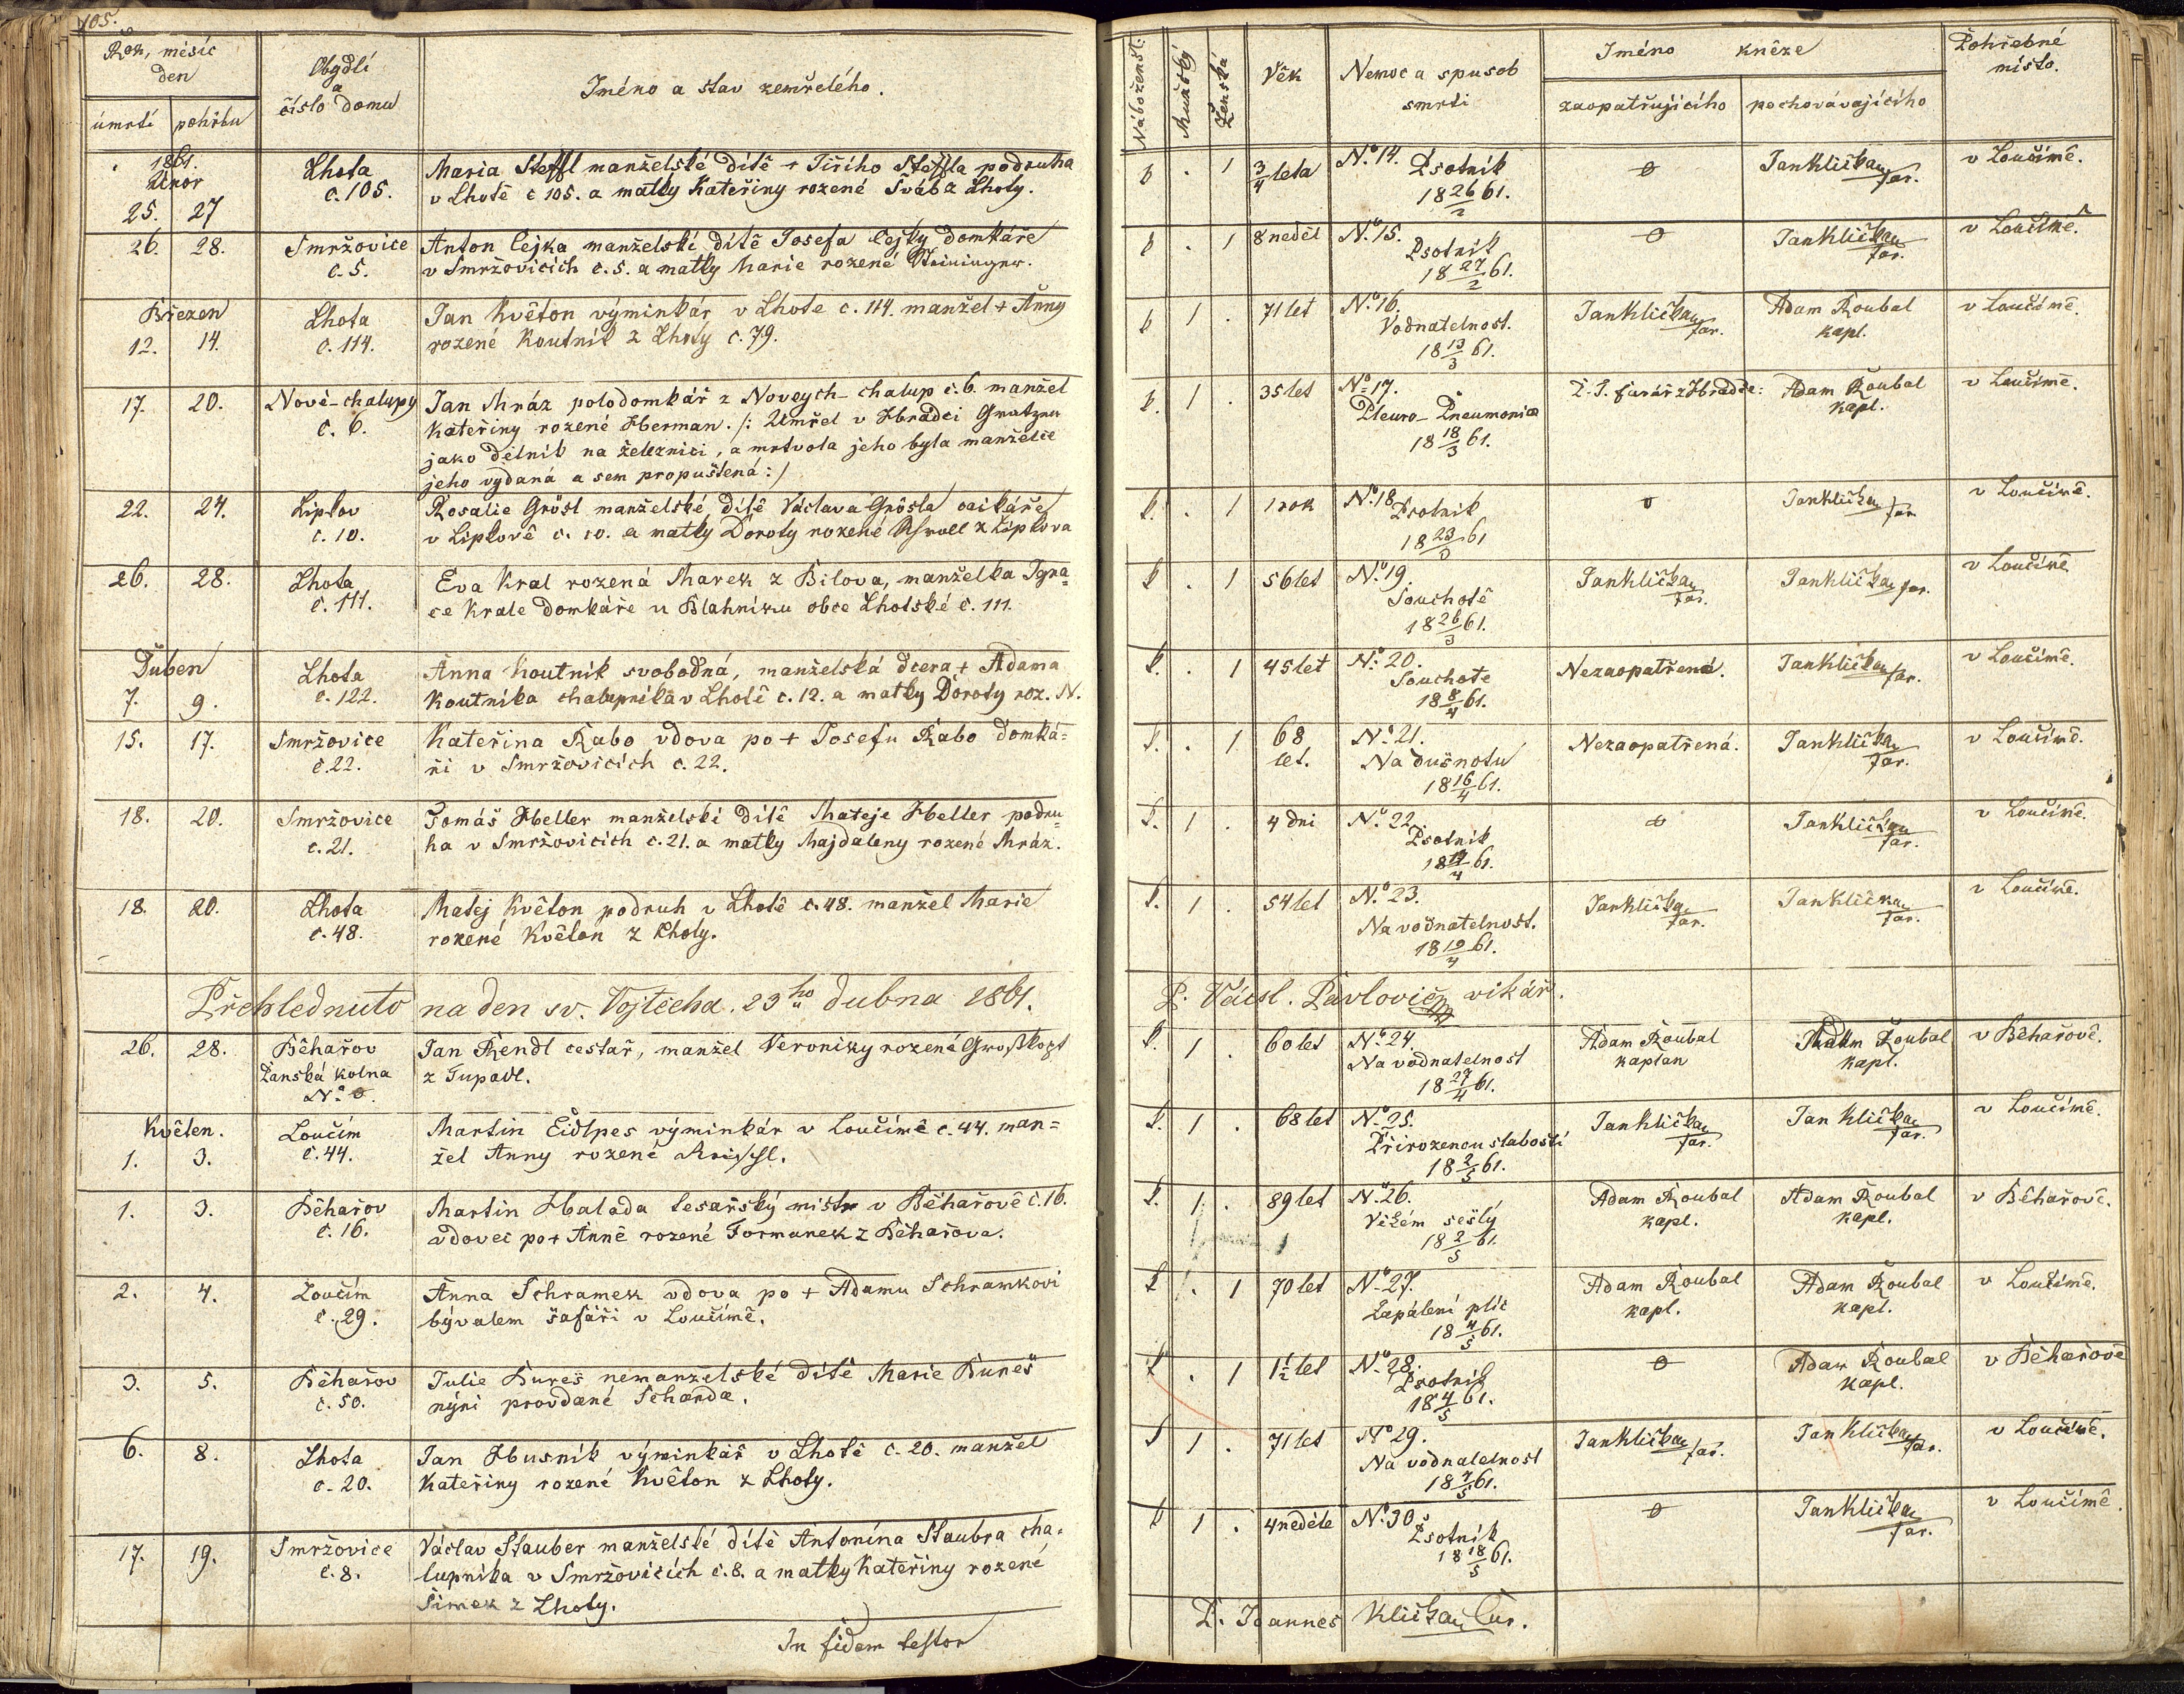 105.
Rok, měsíc
den
úmrtí
pohřbu
Obydlí
a
číslo domu
Jméno a stav zemřelého.
1861.
Únor
25. 27
Lhota
č. 105.
Maria Steffl manželské dítě + Jiřího Steffla podruha
v Lhotě č 105. a matky Kateřiny rozené Šváb z Lhoty.
26. 28.
Smržovice
č. 5.
Anton Cejka manželské dítě Josefa Cejky domkáře
v Smržovicích č. 5. a matky Marie rozené
Březen
12. 14.
Lhota
č. 114.
Jan Květon výminkár v Lhote č. 114. manžel + Anny
rozené Koutník z Lhoty č. 79.
17. 20.
Nové-chalupy
č. 6.
Jan Mráz polodomkář z Noveych-chalup č. 6. manžel
Kateřiny rozené Herman. /: Umřel v Hradci
jako dělník na železnici, a mrtvola jeho byla manželce
jeho vydaná a sem propuštená :/
22. 24.
Liptov
č. 10.
Rosalie Grösl manželské dítě Václava Grösla
v Liptově č. 10. a matky Doroty rozené z Liptova
26. 28.
Lhota
č. 111.
Eva Kral rozená Marek z Bilova, manželka Igna=
ce Krale domkáře u Blahníku obce Lhotské č. 111.
Duben
7. 9.
Lhota
č. 122.
Anna Koutník svobodná, manželská dcera + Adama
Koutníka chalupníka v Lhotě č. 12. a matky Doroty roz. N.
15. 17.
Smržovice
č. 22.
Kateřina Rabo vdova po + Josefu Rabo domká=
ři v Smržovicích č. 22.
18. 20.
Smržovice
č. 21.
Tomáš Heller manželské dítě Mateje Heller podru=
ha v Smržovicích č. 21. a matky Majdaleny rozené Mráz.
18. 20.
Lhota
č. 48.
Matej Květon podruh v Lhotě č. 48. manžel Marie
rozené Květon z Lhoty.
Přehlednuto na den sv. Vojtěcha. 23ho dubna 1861.
26. 28.
Běhařov
Panská kolna
No 0.
Jan Rendl cestař, manžel Veroniky rozené Großkopf
z Tupadl.
Květen.
1. 3.
Loučím
č. 44.
Martin Eidlpes výminkár v Loučímě č. 44. man=
žel Anny rozené
1. 3.
Běhařov
č. 16.
Martin Halada tesařský mistr v Běhařově č. 16.
vdovec po + Anně rozené Formanek z Běhařova.
2. 4.
Loučím
č. 29.
Anna Schramek vdova po + Adamu Schramkovi
bývalem šafáři v Loučímě.
3. 5.
Běhařov
č. 50.
Julie Bureš nemanželské dítě Marie Bureš
nýni provdané Schanda.
6. 8.
Lhota
č. 20.
Jan Husník výminkář v Lhotě č. 20. manžel
Kateřiny rozené Květon z Lhoty.
17. 19.
Smržovice
č. 8.
Václav Stauber manželské dítě Antonína Staubra cha=
lupníka v Smržovicích č. 8. a matky Kateřiny rozené
Šimek z Lhoty.
In fidem testor
Náboženst:
Mužský
Ženská
Věk
Nemoc a spusob
smrti
Jméno kněze
zaopatřujícího
pochovávajícího
Pohřebné
místo.
. 1 3/4 leta No 14. Psotník 18 26/2 61. 0 Jan Klička far. v Loučímě.
. 1 8 neděl No 15. Psotník 18 27/2 61. 0 Jan Klička far. v Loučímě.
1 . 71 let No 16. Vodnatelnost. 18 13/3 61. Jan Klička far. Adam Roubal kapl. v Loučímě.
1 . 35 let No 17. Pleuro-Pneumonia 18 18/3 61. farář z Hradce: Adam Roubal kapl. v Loučímě.
. 1 1 rok No 18 Psotník 18 23/3 61 0 Jan Klička far. v Loučímě.
. 1 56 let No 19. Souchotě 18 26/3 61. Jan Klička far. Jan Klička far. v Loučímě
. 1 45 let No 20. Souchotě 18 8/4 61. Nezaopatřená. Jan Klička far. v Loučímě.
. 1 68 let. No 21. Na dušnotu 18 16/4 61. Nezaopatřená. Jan Klička far. v Loučímě.
1 . 4 dni No 22. Psotník 18 19/4 61. 0 Jan Klička far. v Loučímě.
1 . 54 let No 23. Na vodnatelnost. 18 19/4 61. Jan Klička far. Jan Klička far. v Loučímě.
P. Václ. Pavlovič vikář.
1 . 60 let No 24. Na vodnatelnost 18 27/4 61. Adam Roubal kaplan Adam Roubal kapl. v Běhařově.
1 . 68 let No 25. Přirozenou slabostí 18 2/5 61. Jan Klička far. Jan Klička far. v Loučímě.
1 . 89 let No 26. Věkem sešlý 18 2/5 61. Adam Roubal kapl. Adam Roubal kapl. v Běhařově.
. 1 70 let No 27. Zapálení plic 18 4/5 61. Adam Roubal kapl. Adam Roubal kapl. v Loučímě.
. 1 1 1/2 let No 28. Psotník 18 4/5 61. 0 Adam Roubal kapl. v Běhařově
1 . 71 let No 29. Na vodnatelnost 18 7/5 61. Jan Klička far. Jan Klička far. v Loučímě.
1 . 4 neděle No 30. Psotník 18 18/5 61. 0 Jan Klička far. v Loučímě.
P. Joannes Klička Cur.